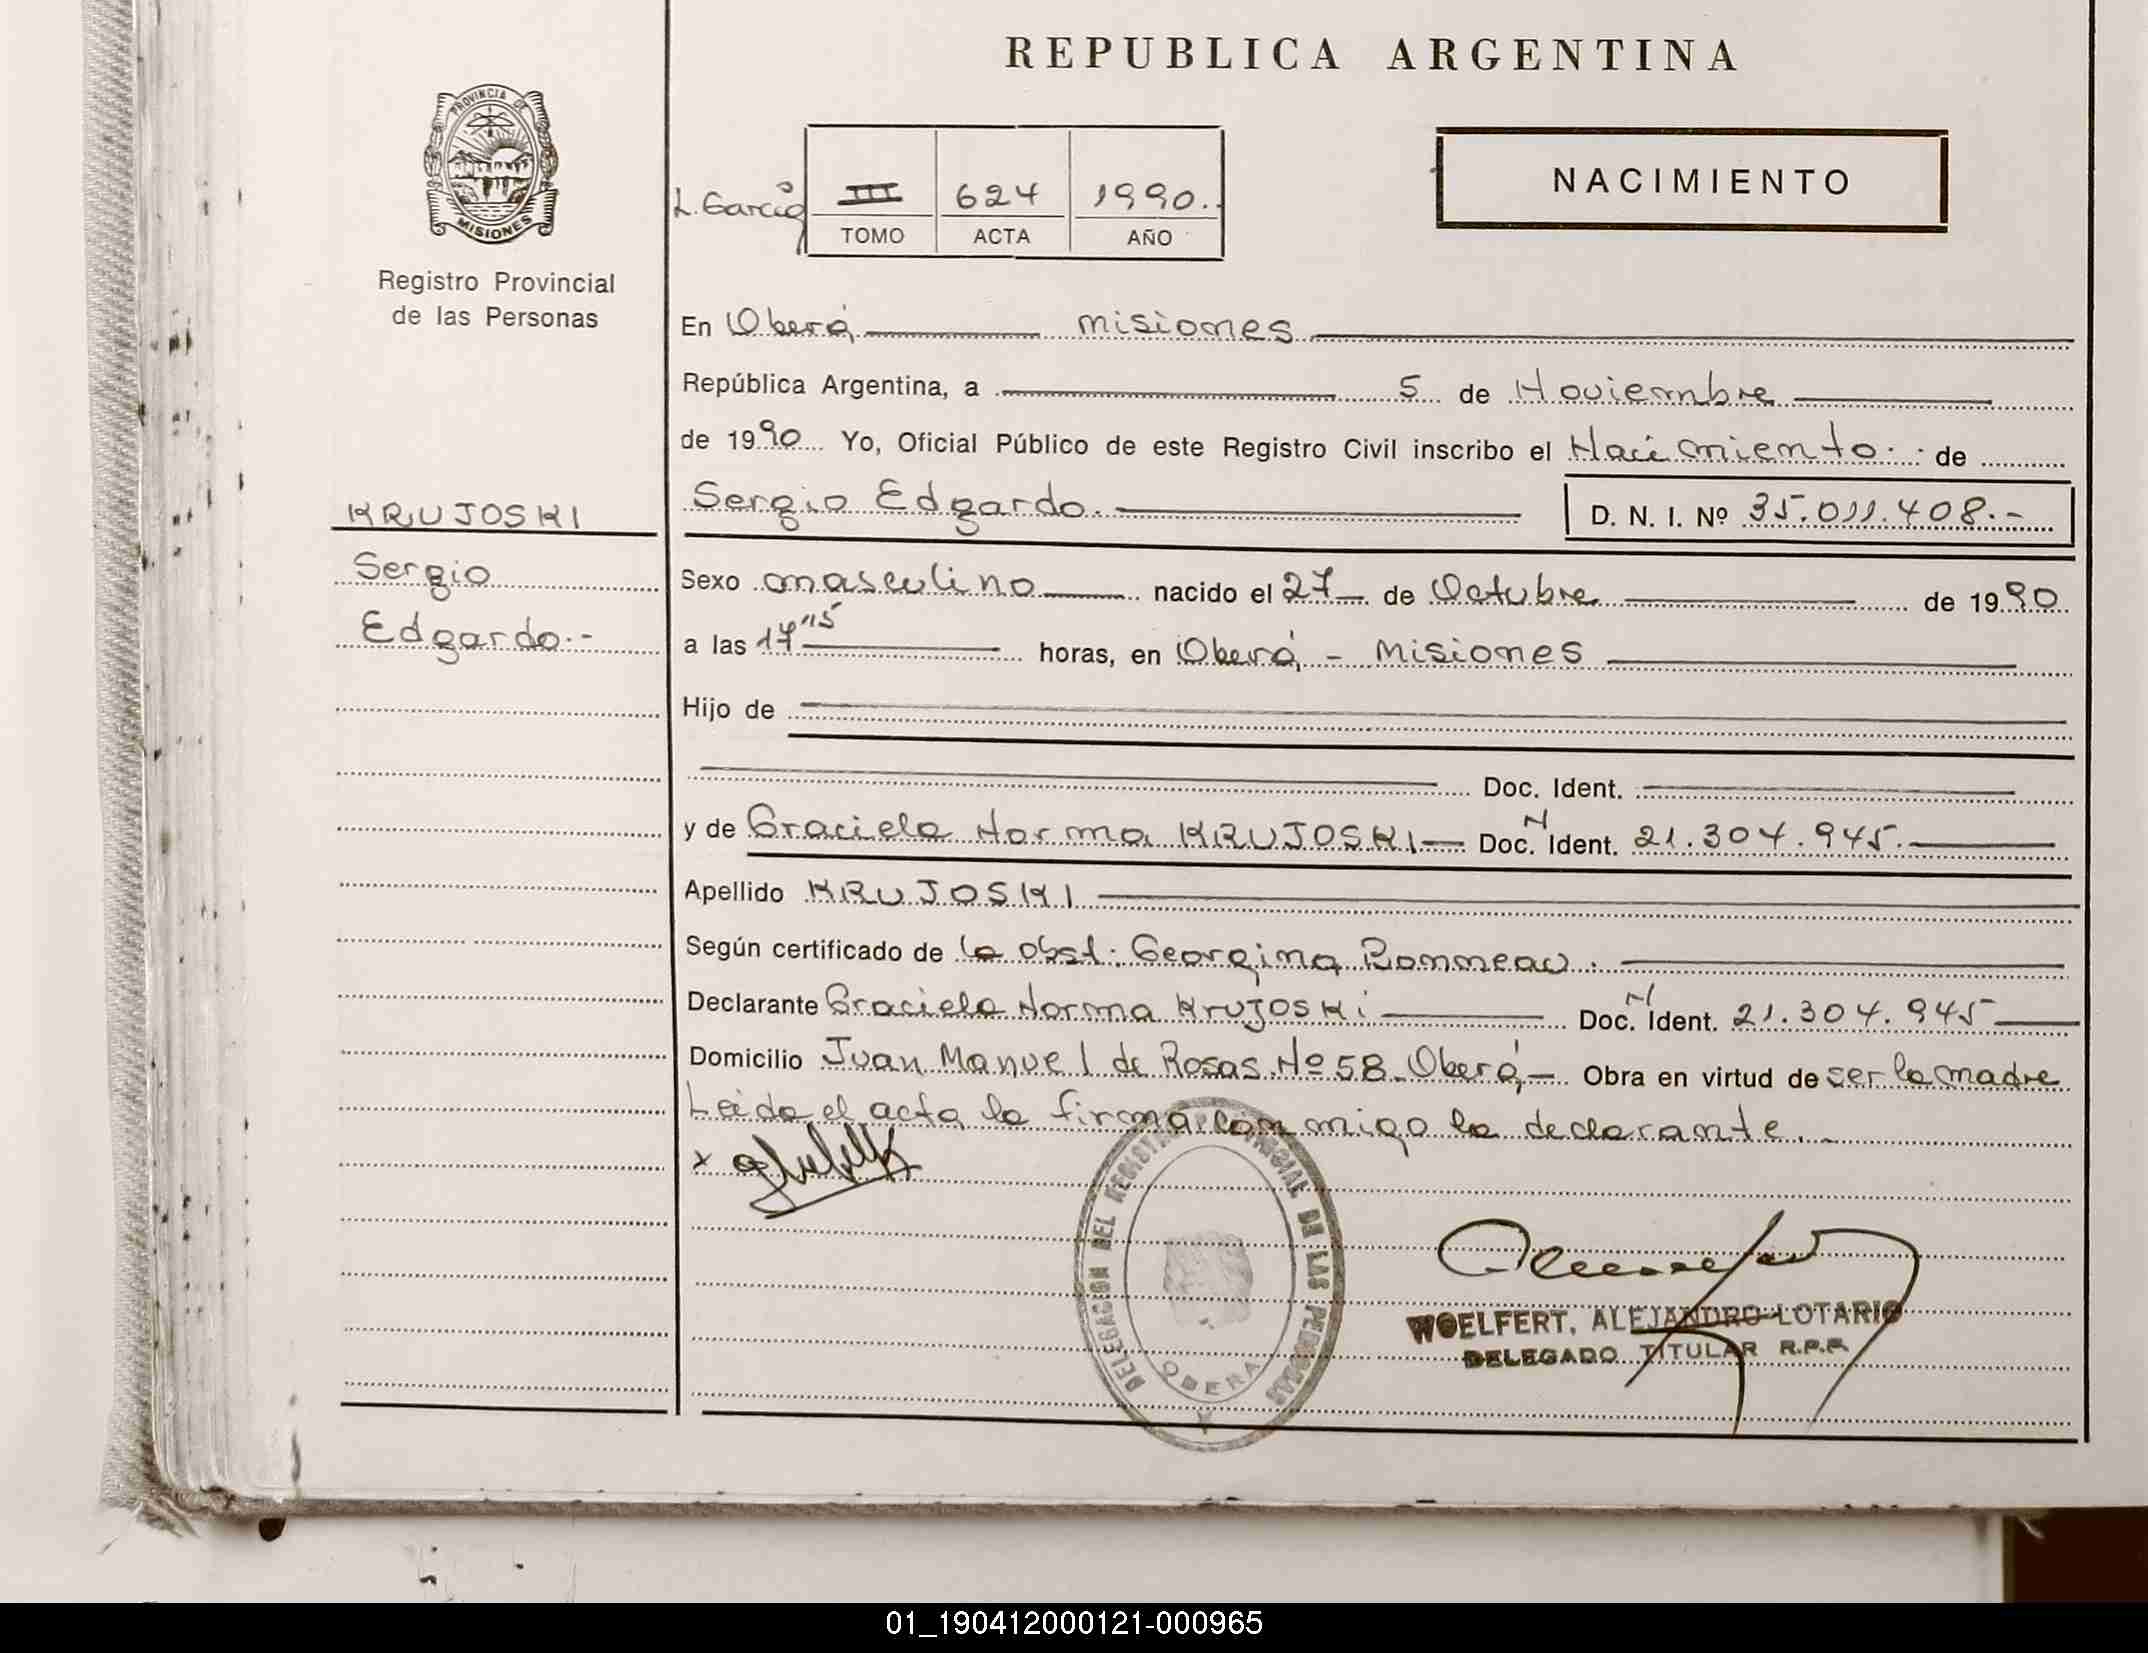 REPUBLICA ARGENTINA
PROVINCIA DE
MISIONES
Registro Provincial
de las Personas
L. García
III 624 1990.
TOMO ACTA AÑO
NACIMIENTO
En Oberá misiones
República Argentina, a 5 de Noviembre
de 1990 Yo, Oficial Público de este Registro Civil inscribo el Nacimiento de
KRUJOSKI
Sergio
Edgardo.-
Sergio Edgardo. D. N. I. Nº 35.011.408.-
Sexo masculino nacido el 27 de Octubre de 1990
a las 17"15 horas, en Oberá - Misiones
Hijo de
Doc. Ident.
y de Graciela Norma KRUJOSKI Doc. N Ident. 21.304.945.
Apellido KRUJOSKI
Según certificado de la obst. Georgina Ronmeau.
Declarante Graciela Norma Krujoski Doc. N Ident. 21.304.945
Domicilio Juan Manuel de Rosas Nº 58 Oberá Obra en virtud de ser la madre
Leida el acta la firma conmigo la declarante.
x
DELEGACION DEL REGISTRO PROVINCIAL DE LAS PERSONAS
OBERA
WOELFERT, ALEJANDRO LOTARIO
DELEGADO TITULAR R.P.P.
01_190412000121-000965